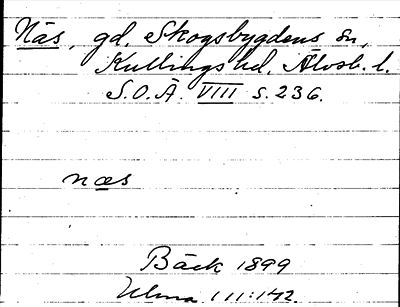 Näs, gd. Skogsbygdens sn,
Kullings hd. Älvsb. l.
S.O.Ä. VIII s. 236.
næs
Bäck 1899
III:142